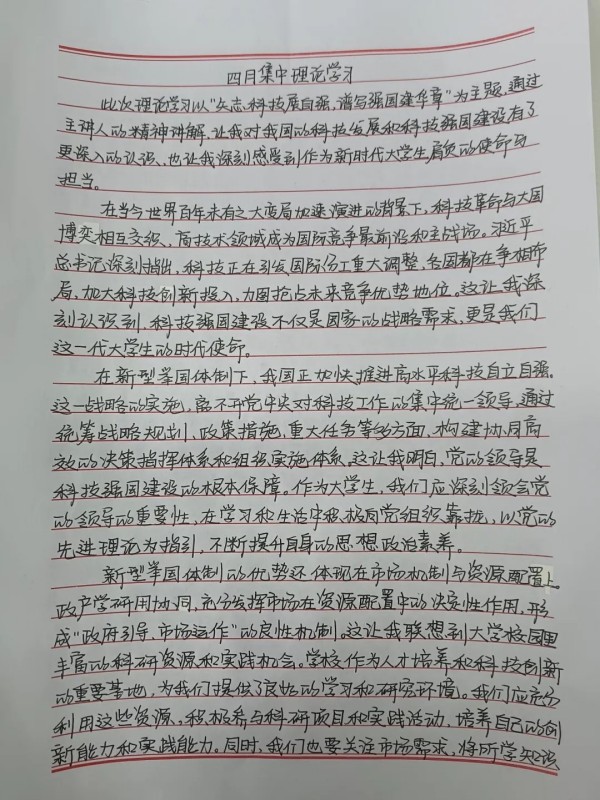 四月集中理论学习
此次理论学习以"矢志科技展自强,谱写强国建华章"为主题,通过
主讲人的精神讲解,让我对我国的科技发展和科技强国建设有了
更深入的认识、也让我深刻感受到作为新时代大学生肩负的使命与
担当。
在当今世界百年未有之大变局加速演进的背景下,科技革命与大国
博奕相互交织、高技术领域成为国际竞争最前沿和主战场。习近平
总书记深刻指出,科技正在引发国际分工重大调整,各国都在争相布
局,加大科技创新投入,力图抢占未来竞争优势地位。这让我深
刻认识到,科技强国建设不仅是国家的战略需求,更是我们
这一代大学生的时代使命。
在新型举国体制下,我国正加快推进高水平科技自立自强。
这一战略的实施,离不开党中央对科技工作的集中统一领导。通过
统筹战略规划、政策措施、重大任务等多方面,构建协同高
效的决策指挥体系和组织实施体系。这让我明白,党的领导是
科技强国建设的根本保障。作为大学生,我们应深刻领会党
的领导的重要性,在学习和生活中积极向党组织靠拢,以党的
先进理论为指引,不断提升自身的思想政治素养。
新型举国体制的优势还体现在市场机制与资源配置上。
政产学研用协同,充分发挥市场在资源配置中的决定性作用,形
成"政府引导、市场运作"的良性机制。这让我联想到大学校园里
丰富的科研资源和实践机会。学校作为人才培养和科技创新
的重要基地,为我们提供了良好的学习和研究环境。我们应充分
利用这些资源、积极参与科研项目和实践活动,培养自己的创
新能力和实践能力。同时,我们也要关注市场需求,将所学知识